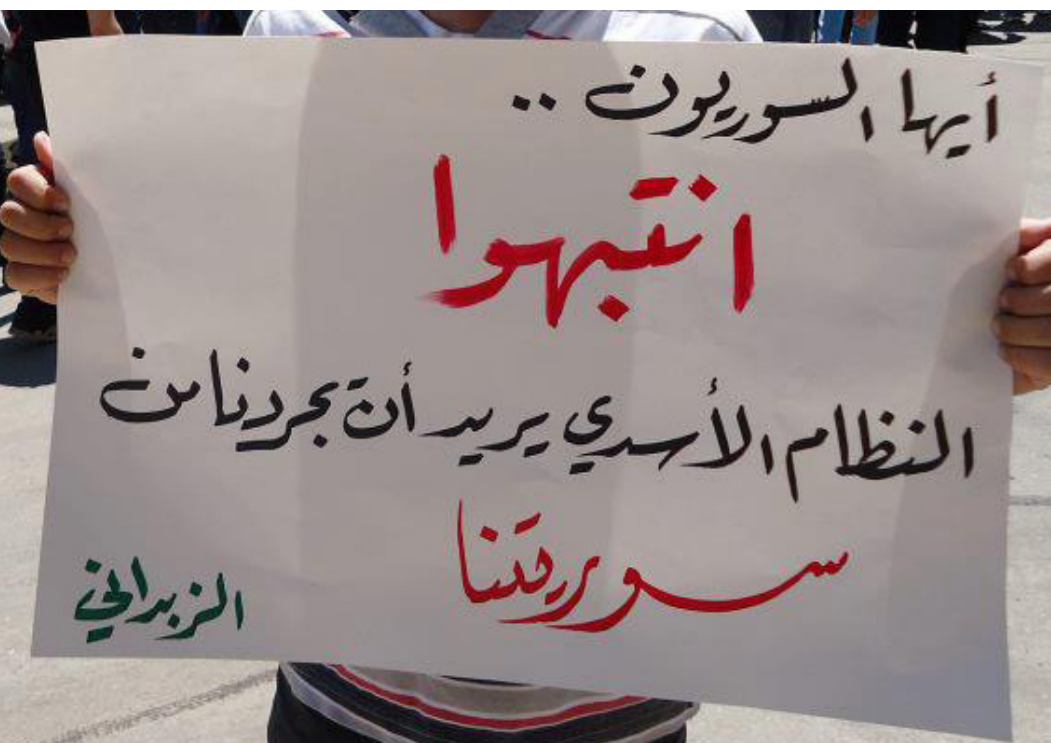 أيها السوريون ..
انتبهوا
النظام الأسدي يريد أن يجردنا من
سوريتنا
الزبداني